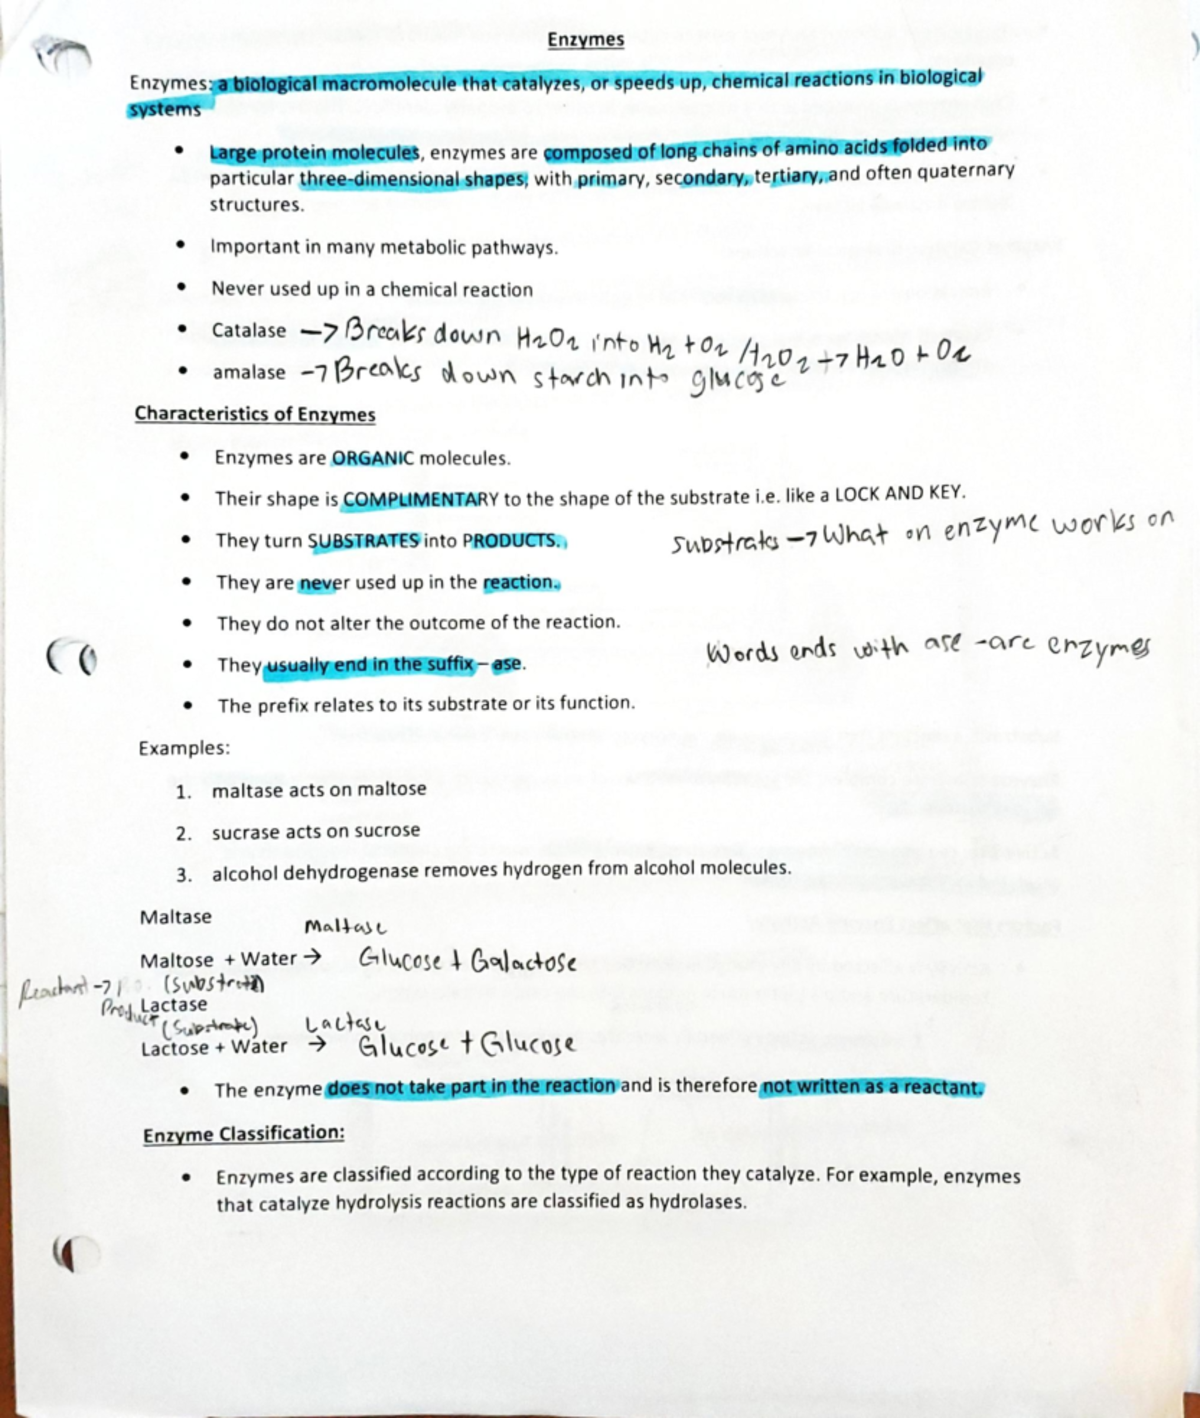 Enzymes
Enzymes: a biological macromolecule that catalyzes, or speeds up, chemical reactions in biological
systems
• Large protein molecules, enzymes are composed of long chains of amino acids folded into
particular three-dimensional shapes, with primary, secondary, tertiary, and often quaternary
structures.
• Important in many metabolic pathways.
• Never used up in a chemical reaction
• Catalase → Breaks down H2O2 into H2 + O2 / H2O2 → H2O + O2
• amalase → Breaks down starch into glucose
Characteristics of Enzymes
• Enzymes are ORGANIC molecules.
• Their shape is COMPLIMENTARY to the shape of the substrate i.e. like a LOCK AND KEY.
• They turn SUBSTRATES into PRODUCTS. substrates → What an enzyme works on
• They are never used up in the reaction.
• They do not alter the outcome of the reaction.
• They usually end in the suffix – ase. Words ends with ase - are enzymes
• The prefix relates to its substrate or its function.
Examples:
1. maltase acts on maltose
2. sucrase acts on sucrose
3. alcohol dehydrogenase removes hydrogen from alcohol molecules.
Maltase Maltase
Maltose + Water → Glucose + Galactose
Reactant → (Substrate)
Product Lactase
(Substrate) Lactase
Lactose + Water → Glucose + Glucose
• The enzyme does not take part in the reaction and is therefore not written as a reactant.
Enzyme Classification:
• Enzymes are classified according to the type of reaction they catalyze. For example, enzymes
that catalyze hydrolysis reactions are classified as hydrolases.